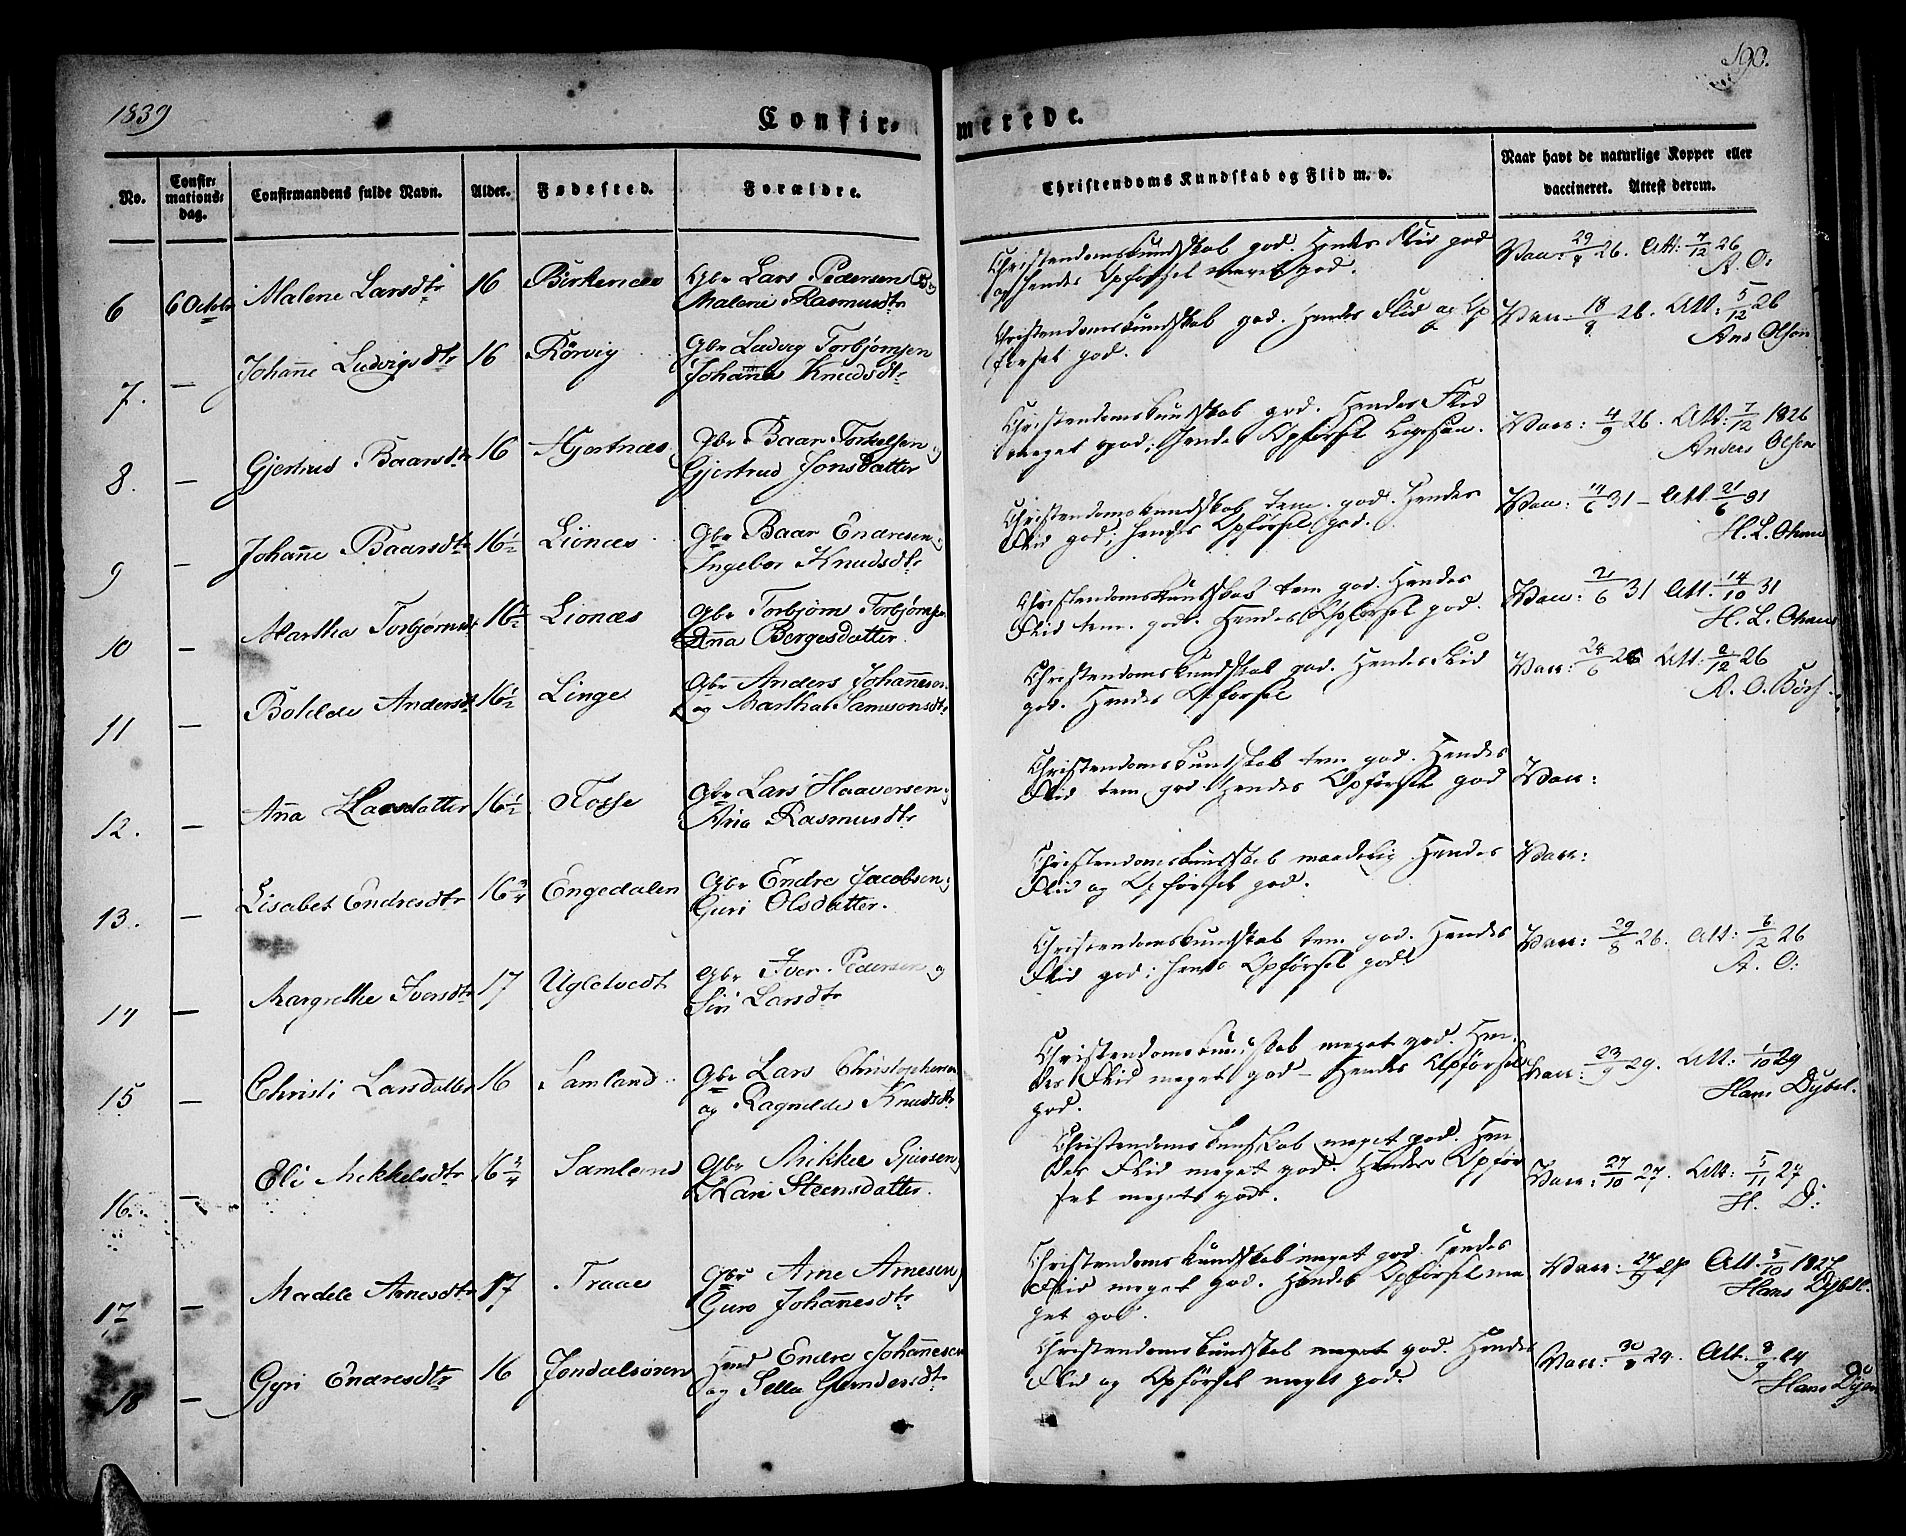 1839
190.
Confir-
merede.
No.
Confir-
mations-
dag.
Confirmandens fulde Navn.
Alder.
Fødested.
Forældre.
Christendoms Kundskab og Flid m. v.
Naar havt de naturlige Kopper eller
vaccineret. Attest derom.
6 6 Octbr Malene Larsdtr 16 Birkenæs Gbr Lars Pedersen og
Malene Rasmusdtr
Christendomskundskab god. Hendes Flid god
og hendes Opførsel meget god.
Vacc: 29/9 26. Att: 7/12 26
A. O:
7. — Johanne Ludvigsdtr 16 Rørvig Gbr Ludvig Torbjørnsen
Johanna Knudsdtr
Christendomskundskab god. Hendes Flid og Op
førsel god.
Vacc 18/9 26. Att: 5/12 26
Ans Olsen
8. — Gjertrud Baarsdtr 16 Hjertnæs Gbr Baar Torkelsen og
Gjertrud Jonsdatter
Christendomskundskab god. Hendes Flid
meget god; hendes Opførsel
Vacc: 4/9 26. Att: 7/12 1826
Anders Olsen
9 — Johanne Baarsdtr 16½ Lionæs Gbr Baar Endresen og
Ingebor Knudsdtr
Christendomskundskab tem. god. Hendes
Flid god; hendes Opførsel god.
Vacc: 14/6 31 – Att 21/6 31
H. L.
10 — Martha Torbjørnsdt 16½ Lionæs Gbr Torbjørn Torbjørnsen
Anna Bergesdatter.
Christendomskundskab tem god. Hendes
Flid tem. god. Hendes Opførsel god.
Vacc: 21/6 31 Att. 14/10 31
H. L.
11 — Bohilde Andersdt 16½ Linge Gbr Anders Johannesen
og Martha Samsonsdtr
Christendomskundskab god. Hendes Flid
god. Hendes Opførsel
Vacc: 24/6 26 Att: 2/12 26
A. O. Børs
12. — Anna Larsdatter 16½ Tosse Gbr Lars Haaversen og
Aria Rasmusdtr
Christendomskundskab tem god. Hendes
Flid tem god Hendes Opførsel god
Vacc:
13. — Lisabet Endresdtr 16¾ Engedalen Gbr Endre Jacobsen og
Guri Olsdatter.
Christendomskundskab maadelig Hendes
Flid og Opførsel god.
Vacc:
14 — Margrethe Iversdtr 17 Uglelvedt Gbr Iver Pedersen og
Siri Larsdtr
Christendomskundskab tem god. Hendes
Flid god; hendes Opførsel godt
Vacc: 29/8 26. Att: 6/12 26
A. O:
15 — Christi Larsdatter 16 Samland Gbr Lars Christophersen
og Ragnilde Knudsdt
Christendomskundskab meget god. Hen
des Flid meget god – Hendes Opførsel
god.
Vacc: 23/9 29. Att: 1/10 29
Hans Dybel.
16. — Eli Mikkelsdtr 16¾ Samland Gbr Mikkel Gjursen
Kari Steensdatter.
Christendomskundskab meget god. Hen
des Flid meget god. Hendes Opfør
sel meget godt.
Vacc: 27/10 27. Att: 5/11 27
H. D:
17 — Madele Arnesdtr 17 Traae Gbr Arne Arnesen
Guro Johannesdtr
Christendomskundskab meget god. Hendes
Flid meget god. Hendes Opførsel me
get god.
Vacc: Att. 3/10 1827
Hans Dybel.
18 — Gyri Endresdtr 16 Jondalsøren Huusmd Endre Johannesen
og Sella Gunders­dtr
Christendomskundskab meget god. Hendes
Flid og Opførsel meget god.
Vacc: 30/8 24. Att. 8/9 24
Hans